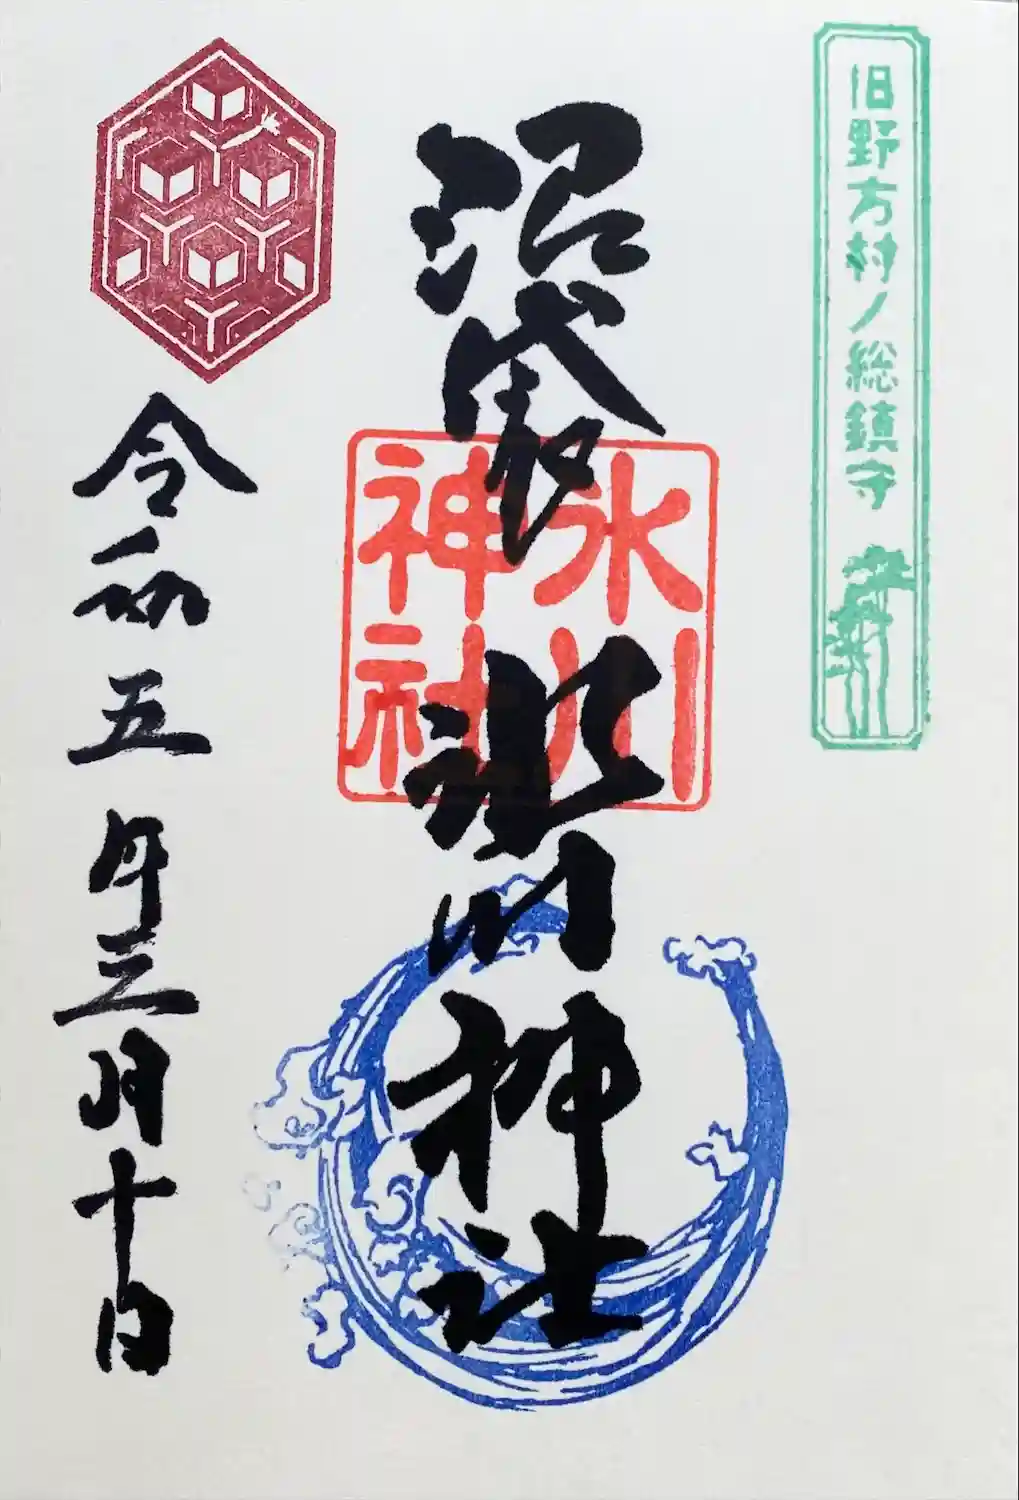 旧野方村ノ総鎮守
沼袋氷川神社
氷川
神社
令和五年三月十日